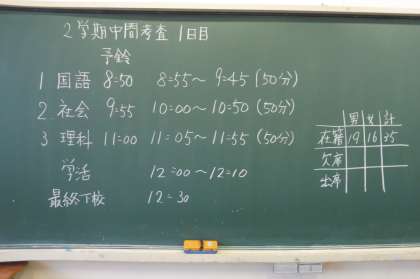 2学期中間考査 1日目
予鈴
1 国語 8:50 8:55〜9:45(50分)
2 社会 9:55 10:00〜10:50(50分)
3 理科 11:00 11:05〜11:55(50分)
学活 12:00〜12:10
最終下校 12:30
男 女 計
在籍 19 16 35
欠席
出席